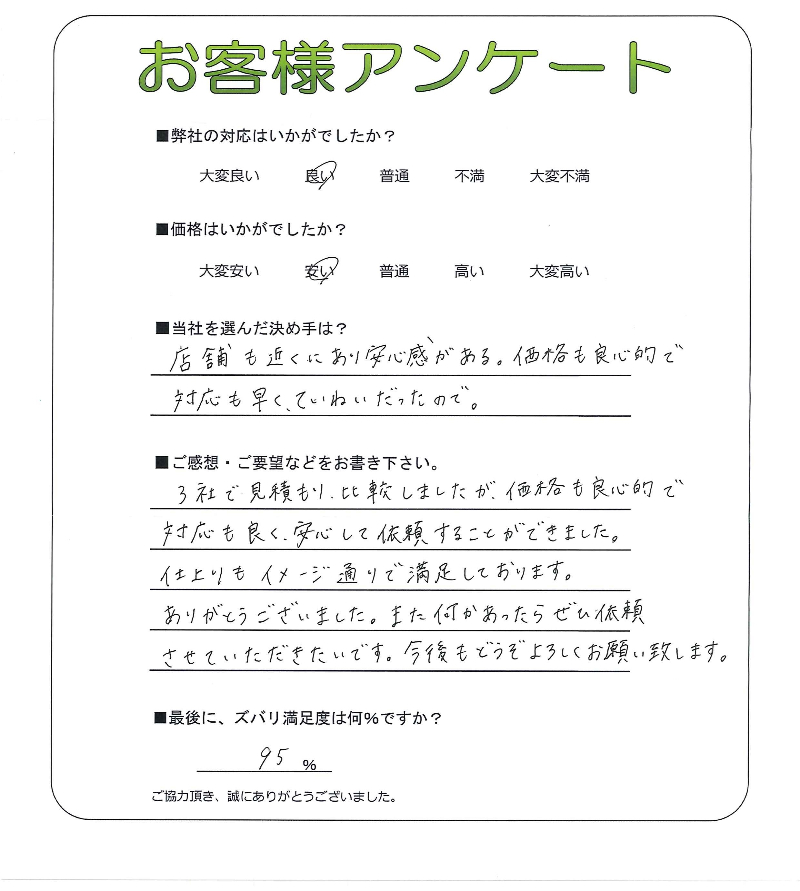 お客様アンケート
■弊社の対応はいかがでしたか？
大変良い 良い 普通 不満 大変不満
■価格はいかがでしたか？
大変安い 安い 普通 高い 大変高い
■当社を選んだ決め手は？
店舗も近くにあり安心感がある。価格も良心的で
対応も早く、ていねいだったので。
■ご感想・ご要望などをお書き下さい。
3社で見積もり、比較しましたが、価格も良心的で
対応も良く、安心して依頼することができました。
仕上りもイメージ通りで満足しております。
ありがとうございました。また何かあったらぜひ依頼
させていただきたいです。今後もどうぞよろしくお願い致します。
■最後に、ズバリ満足度は何％ですか？
95 %
ご協力頂き、誠にありがとうございました。